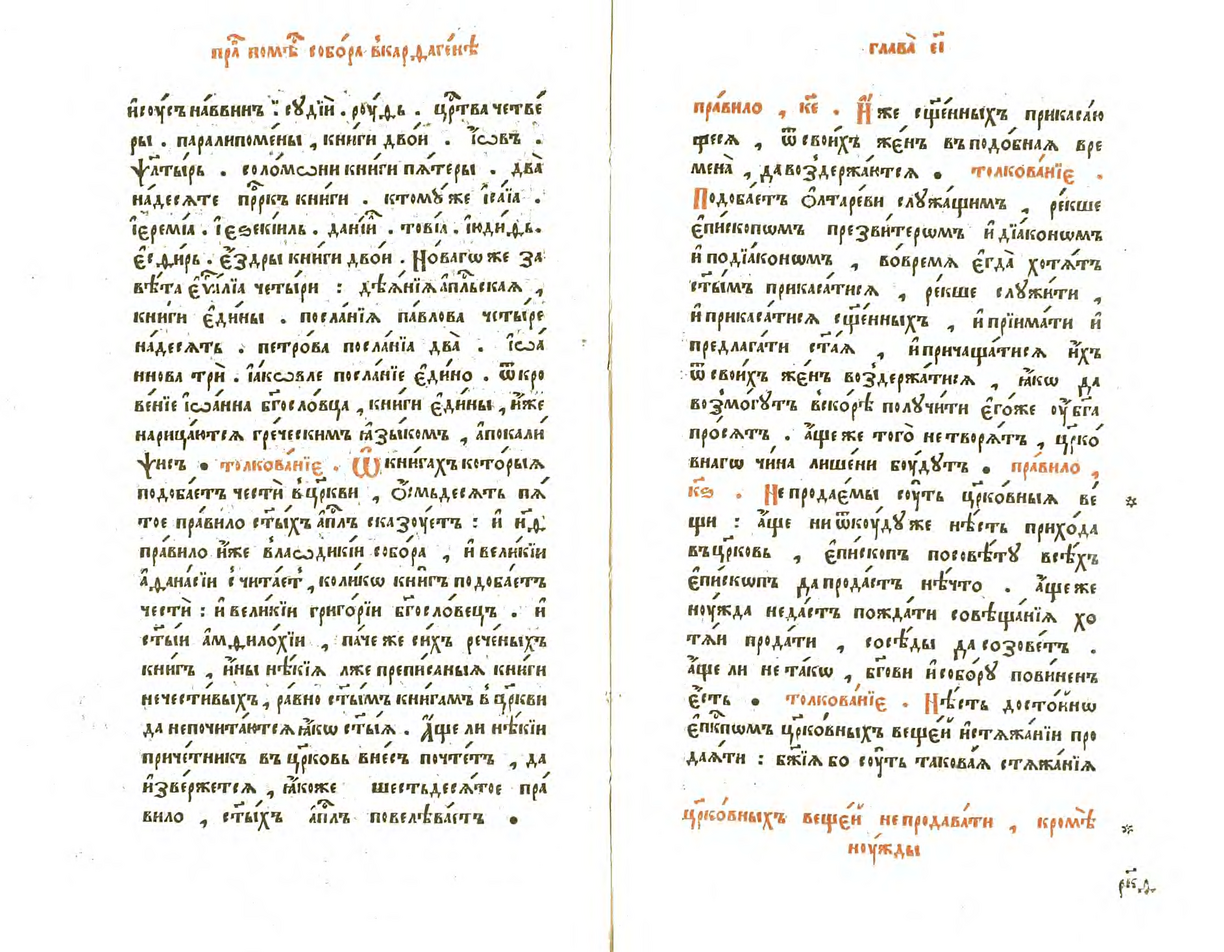 пра҇ поме҇ собо́ра вкарѳаге́нѣ
и҆соу́съ на́ввинъ . су́дїй . ро́уѳь . цр҇тва четве́
ры . паралипоме́ны , книги двои́ . і҆́ѡвъ .
ѱалты́рь . соло́мѡни книги пя́теры . два̀
на́десяте прⷪ҇ркъ книги . ктому́же і҆са́їа .
і҆еремі́а . і҆езекі́иль . данїи́л . тові́а . і҆юди́ѳь .
є҆сѳи́рь . є҆́здры книги двои́ . Но́вагѡже за
вѣ́та є҆ѵⷢ҇лїа четы́ри : дѣ́янїѧ а҆пⷭ҇льская ,
книги є҆ди́ны . посла́нїѧ па́влова четы́ре
на́десять . петро́ва посла́нїа два̀ . і҆ѡа́
ннова трѝ . і҆а́кѡвле посла́нїе є҆ди́но . ѿкро
ве́нїе і҆ѡа́нна бг҃осло́вца , книги є҆ди́ны , и҆́же
нарица́ются гре́ческимъ ꙗ҆зы́комъ , а҆покали́
ѱисъ . толкова́нїе . Ѽ кни́гахъ кото́рыѧ
подоба́етъ че́сти в҆ цр҃кви , ѻ҆смьдеся́тъ пѧ́
тое пра́вило ст҃ы́хъ а҆пⷭ҇лъ сказо́уетъ : и҆ н҃ѳ
пра́вило и҆́же в҆лаѡдикі́и собо́ра , и҆ вели́кїи
а҆ѳана́сїи счита́етъ , коли́кѡ кни́гъ подоба́етъ
че́сти : и҆ вели́кїи григо́рїи бг҃осло́вецъ . и҆
ст҃ы́и а҆мѳило́хїи , па́че же си́хъ рече́ныхъ
кни́гъ , и҆́ны нѣ́кїѧ лже преписаныѧ кни́ги
нечести́выхъ , ра́вно ст҃ы́мъ кни́гамъ в҆ цр҃кви
да непочита́ются ꙗ҆́кѡ ст҃ы́ѧ . А҆́ще ли нѣ́кїи
приче́тник въ цр҃ковь вне́съ почте́тъ , да
и҆зве́ржется , ꙗ҆́коже шестьдеся́тое пра́
вило , ст҃ы́хъ а҆пⷭ҇лъ повелѣва́етъ .
глава̀ є҃і
пра́вило , к҃е . И҆́же сщ҃е́нныхъ прикаса́ю
щеся , ѿ свои́хъ же́нъ въ подо́бная вре
мена̀ , да воздержа́тся . толкова́нїе .
Подоба́етъ ѻ҆лтаре́ви слу́жащимъ , ре́кше
є҆пи́скопѡмъ презви́терѡмъ и҆ дїа́конѡмъ
и҆ подїа́конѡмъ , во вре́мѧ є҆гда̀ хотя́тъ
ст҃ы́мъ прикаса́тися , ре́кше служи́ти ,
и҆ прикаса́тися сщ҃е́нныхъ , и҆ прїима́ти и҆
предлага́ти ст҃а́ѧ , и҆ причаща́тися и҆́хъ
ѿ свои́хъ же́нъ воздержа́тися , ꙗ҆́кѡ да
возмо́гутъ вско́рѣ получи́ти є҆го́же ѹ҆ бг҃а
про́сятъ . а҆́ще же того̀ не творя́тъ , цр҃ко́
внагѡ чи́на лише́ни бо́удутъ . пра́вило ,
к҃ѕ . Не прода́емы со́уть цр҃ко́вныѧ ве́
щи : а҆́ще ни ѿко́удуже нѣ́сть прихо́да
въ цр҃ковь , є҆пи́скопъ по совѣ́ту всѣ́хъ
є҆пи́скопъ да прода́стъ нѣ́что . а҆́ще же
но́ужда неда́стъ пожда́ти совѣща́нїѧ хо
тя́и прода́ти , сосѣ́ды да созове́тъ .
а҆́ще ли не та́кѡ , бг҃ови и҆ собо́ру пови́ненъ
є҆́сть . толкова́нїе . Нѣ́сть досто́йнѡ
є҆пⷭ҇кпѡмъ цр҃ко́вныхъ веще́й и҆ стяжа́нїи про
дая́ти : бж҃їѧ бо со́уть такова́ѧ стяжа́нїѧ
цр҃ко́вныхъ веще́й не продава́ти , кромѣ̀
но́ужды
рк҃ѳ